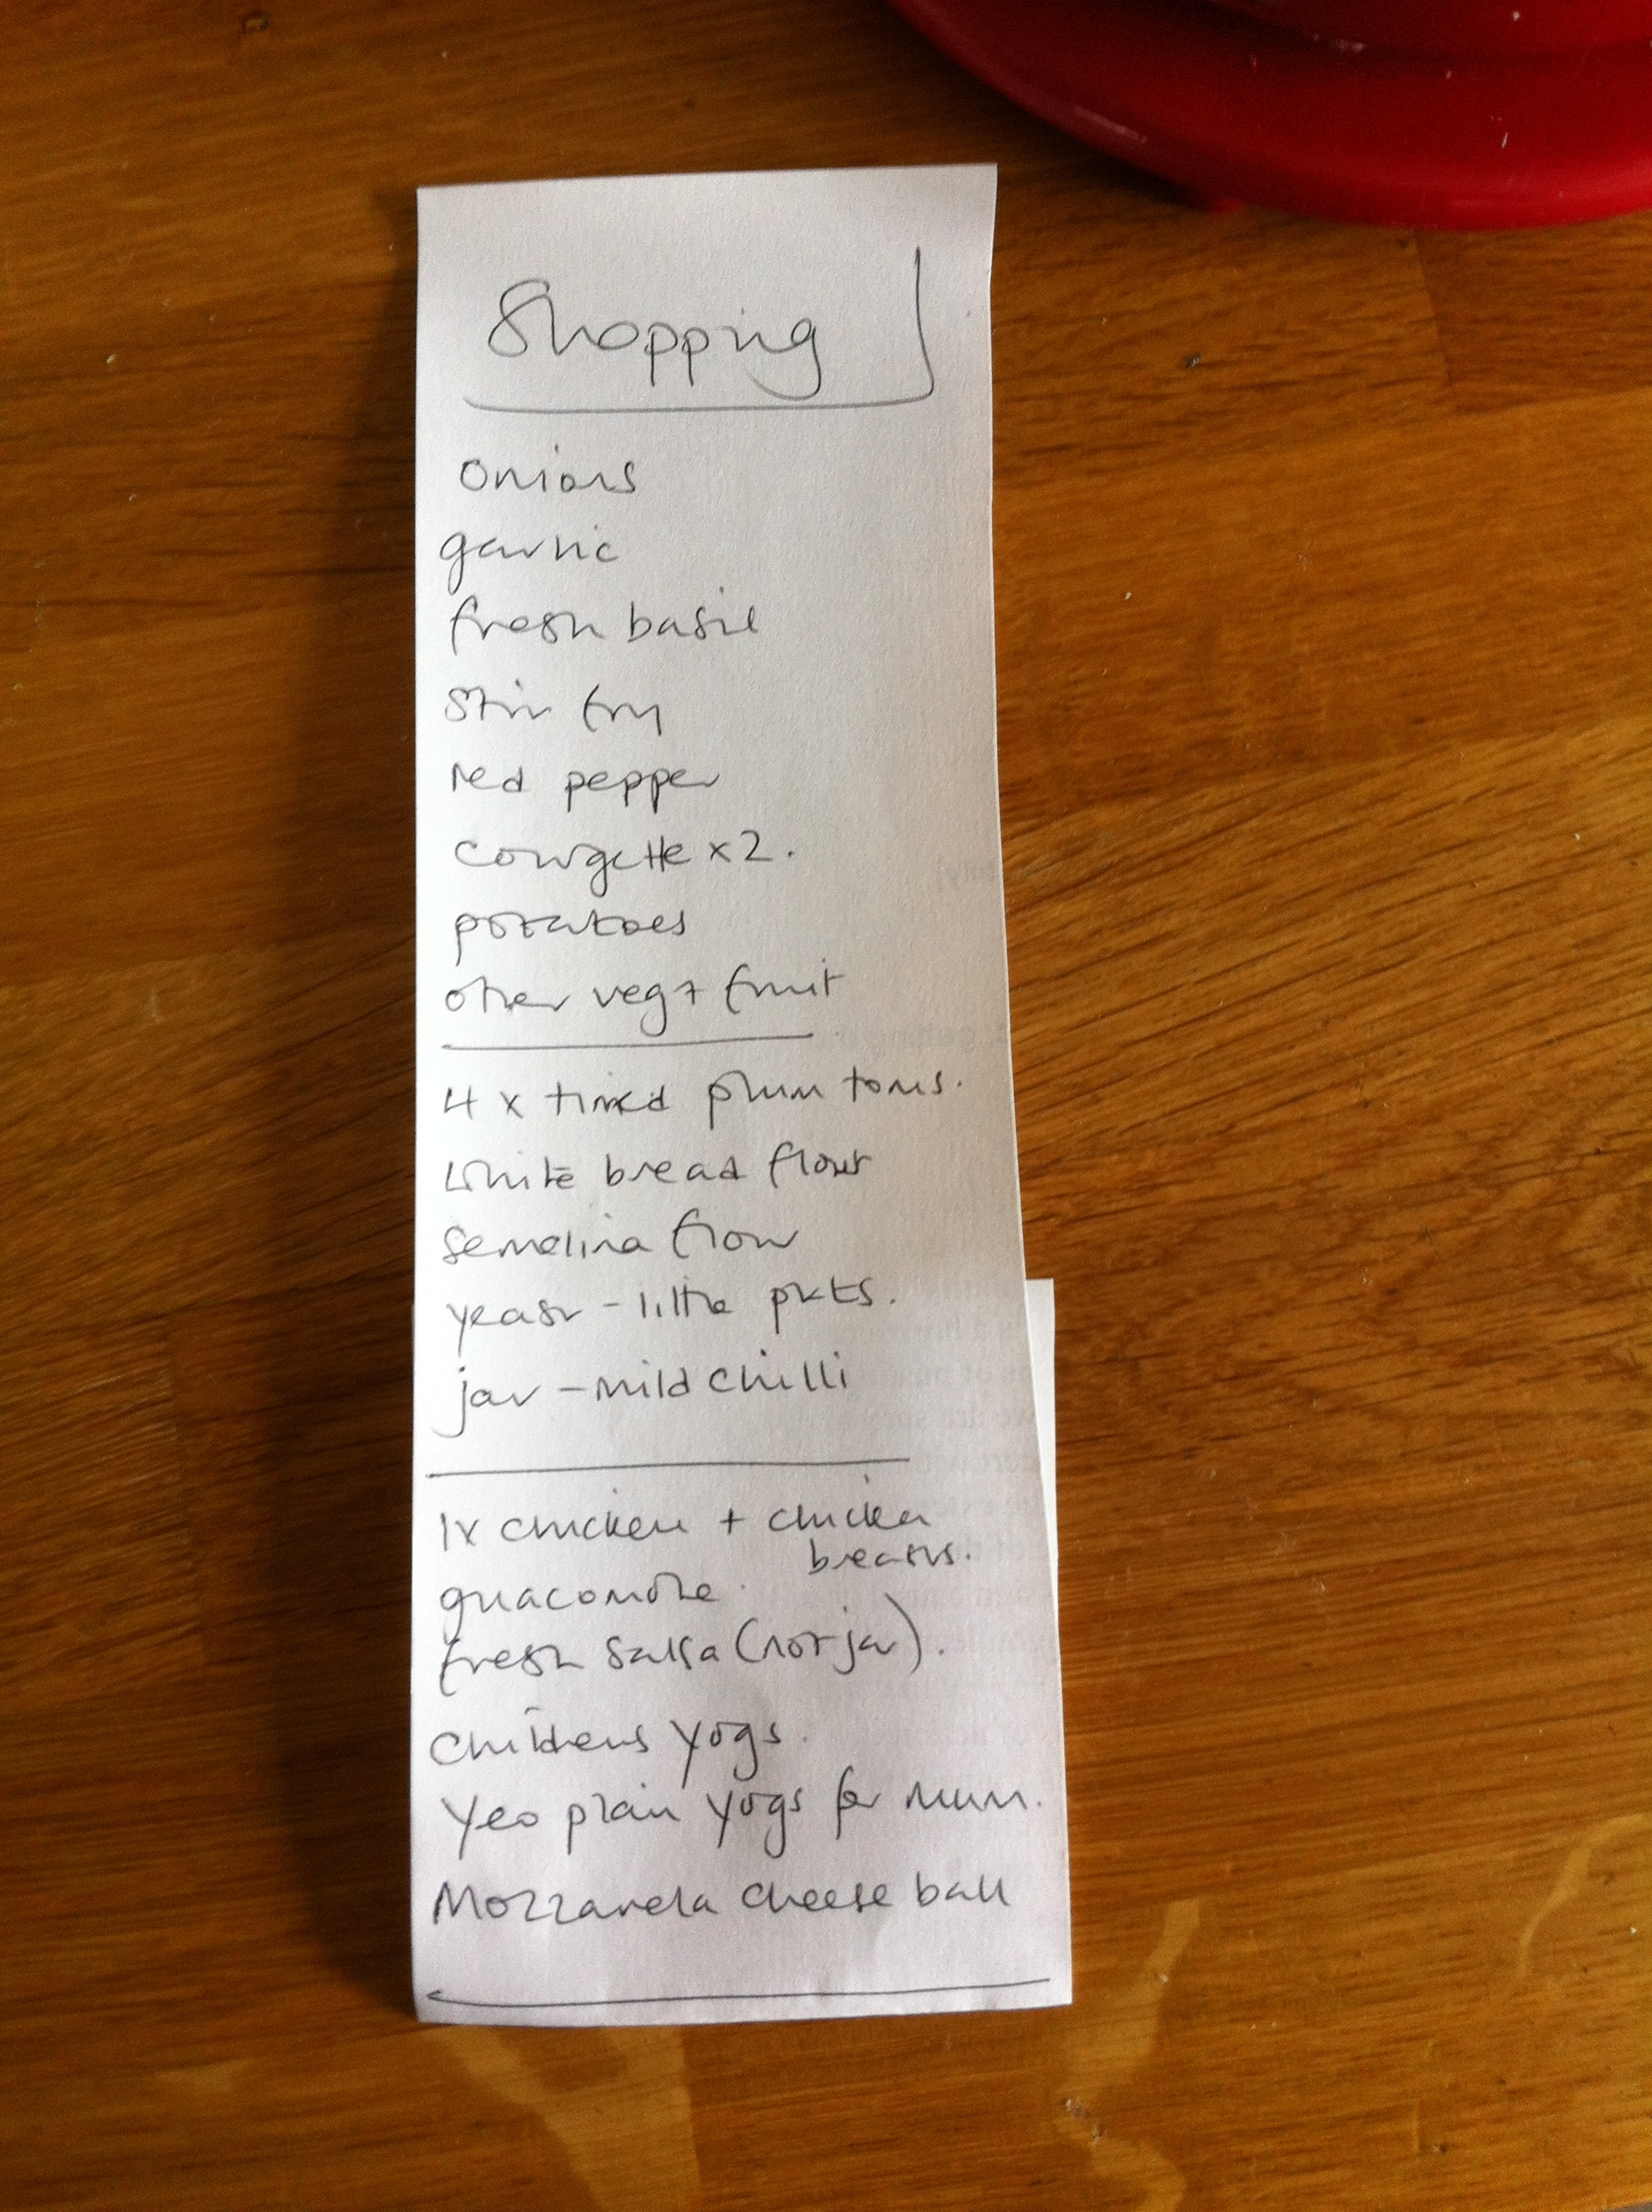 Shopping
onions
garlic
fresh basil
Stir fry
red pepper
courgette x2.
potatoes
other veg + fruit
4 x tinned plum toms.
White bread flour
Semolina flour
yeast - little pkts.
jar - mild chilli
1x chicken + chicken
breasts.
guacomole.
fresh salsa (not jar).
Childrens yogs.
Yeo plain yogs for mum.
Mozzarela cheese ball